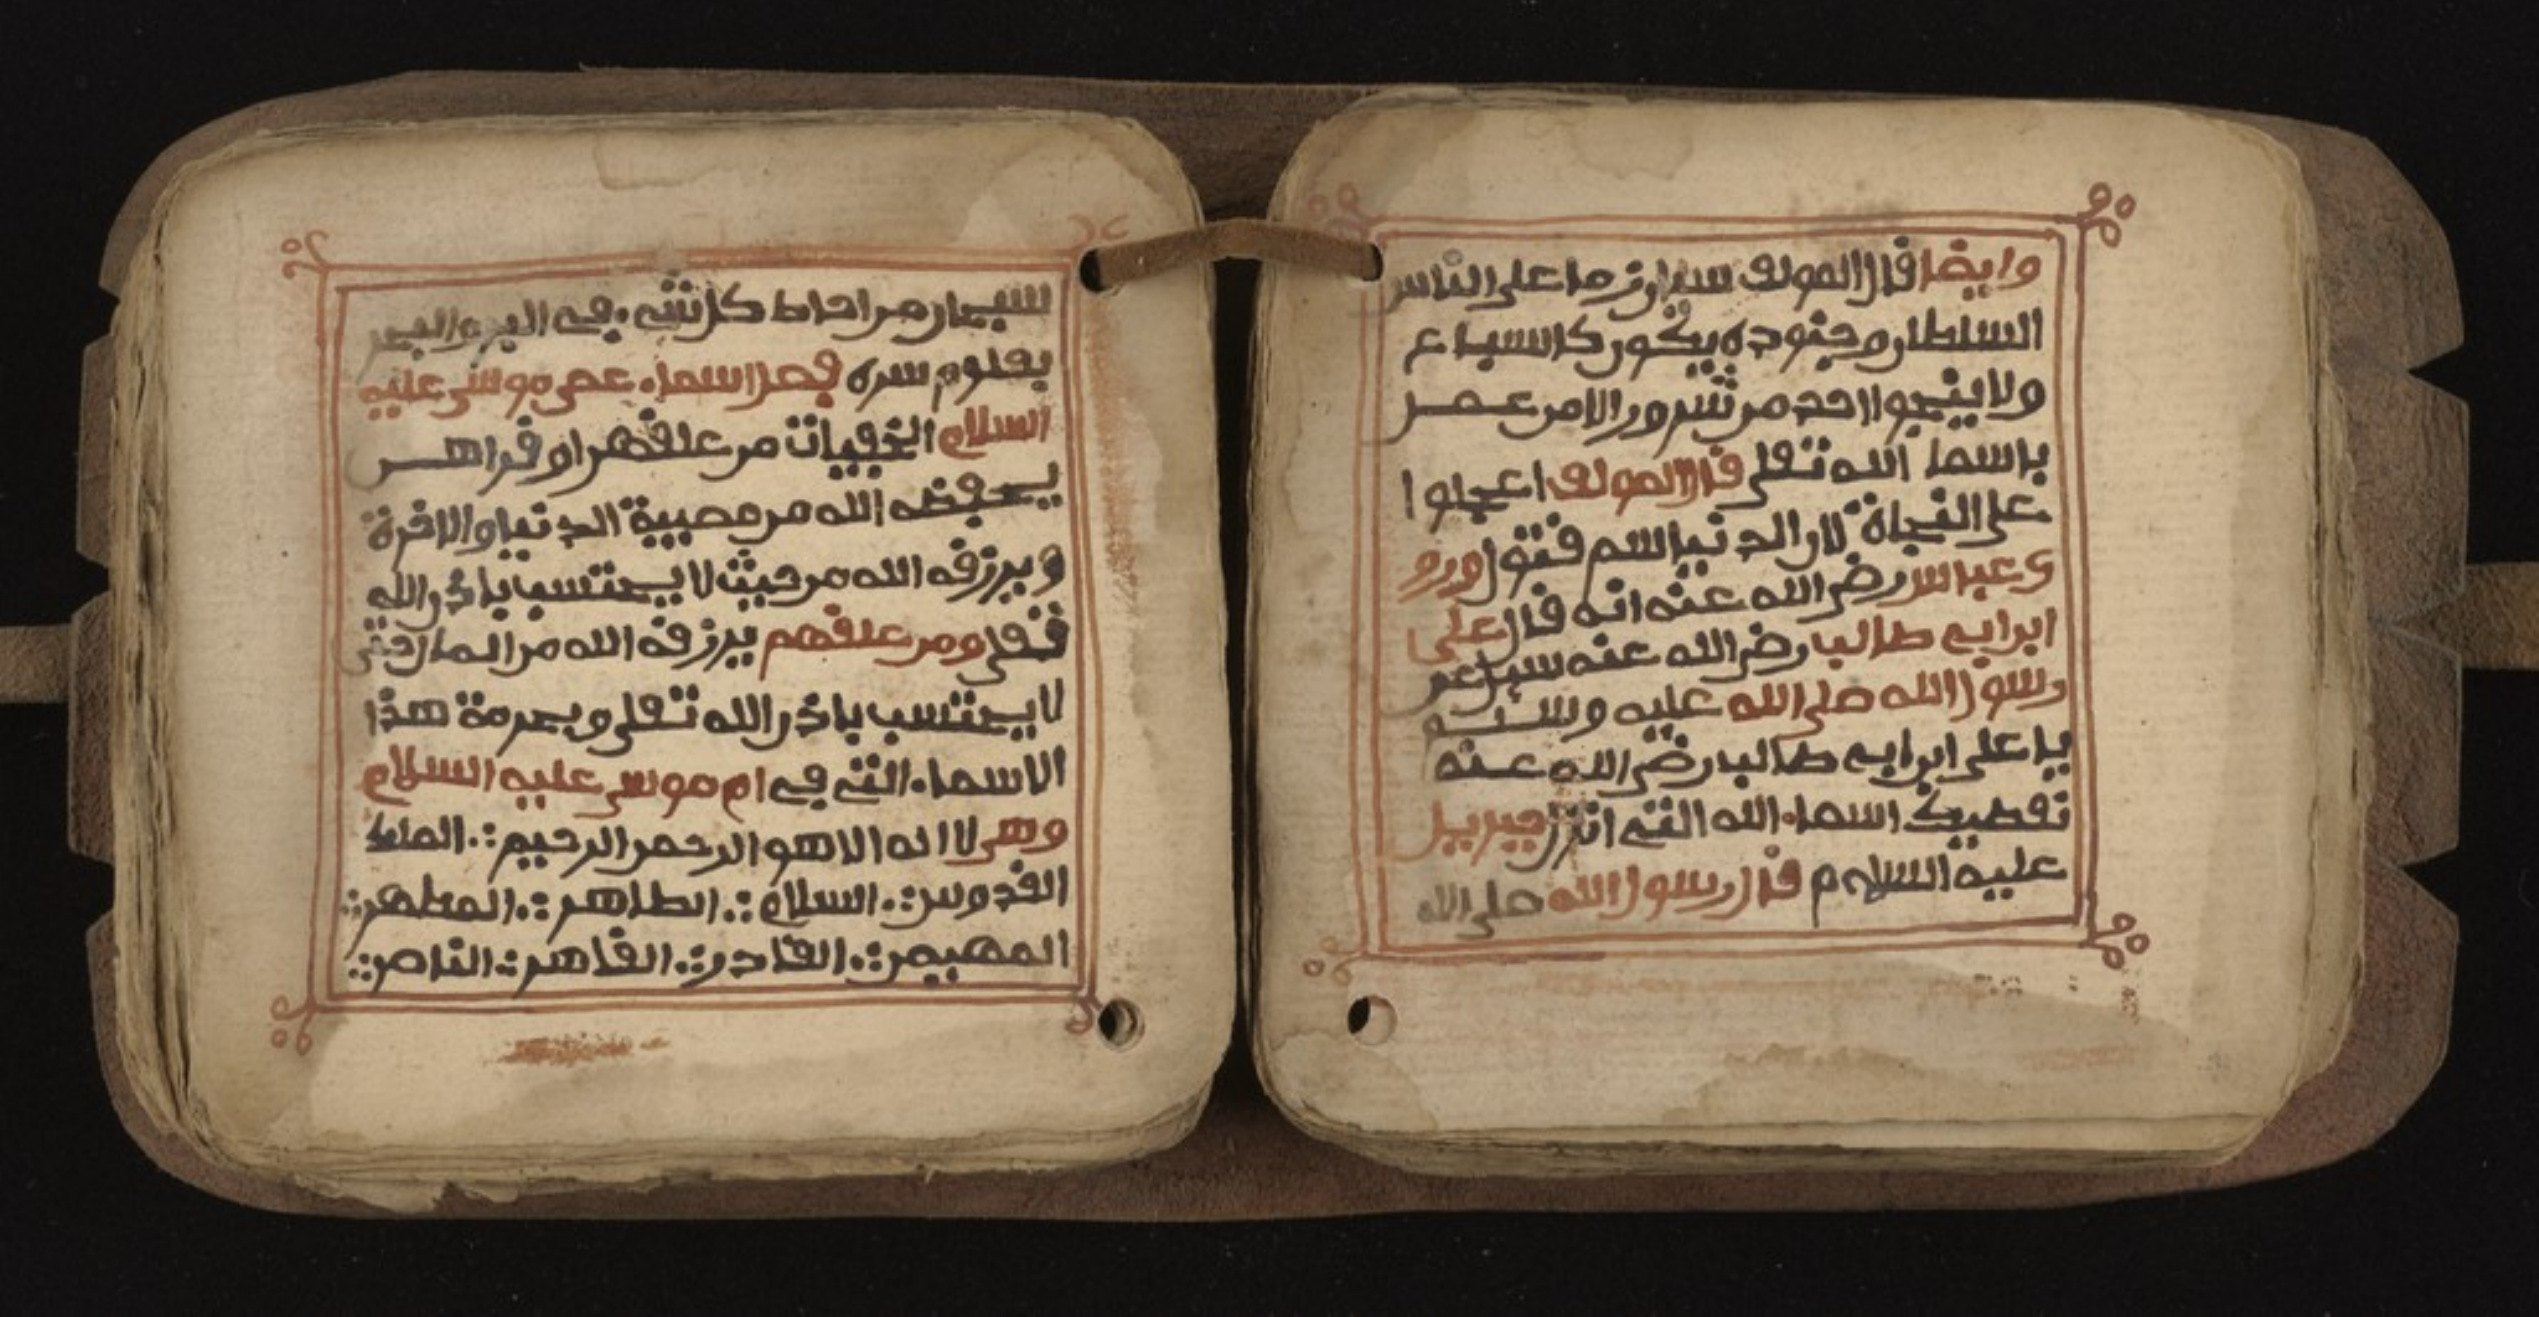 وايضا قال المولف سياتي زما على الناس
السلطان وجنوده يكون كالسباع
ولا ينجوا احد من شرور الا من عصر
باسما الله تعلى قال المولف اعجلوا
على النجاة لان الدنيا سم قتول وروي
عباس رضي الله عنه انه قال علي
ابن ابي طالب رضي الله عنه سيل عن
رسول الله صلى الله عليه وسلم
يا علي ابن ابي طالب رضي الله عنه
نعطيك اسماء الله التي انزل جبريل
عليه السلام قال رسول الله صلى الله
سبحان من احاط كل شيء في البر والبحر
بعلوم سره فصل اسماء عصى موسى عليه
السلام الخفيات من علقهن او قراهن
يحفظه الله من مصيبة الدنيا والاخرة
ويرزقه الله من حيث لا يحتسب باذن الله
تعلى ومن علقهم يرزقه الله من المال حتى
لا يحتسب باذن الله تعلى وبحرمة هذا
الاسماء التي في ام موسى عليه السلام
وهي لا اله الا هو الرحمن الرحيم ∴ الملك
القدوس ∴ السلام ∴ الطاهر ∴ المطهر ∴
المهيمن ∴ القادر ∴ القاهر ∴ الناصر ∴